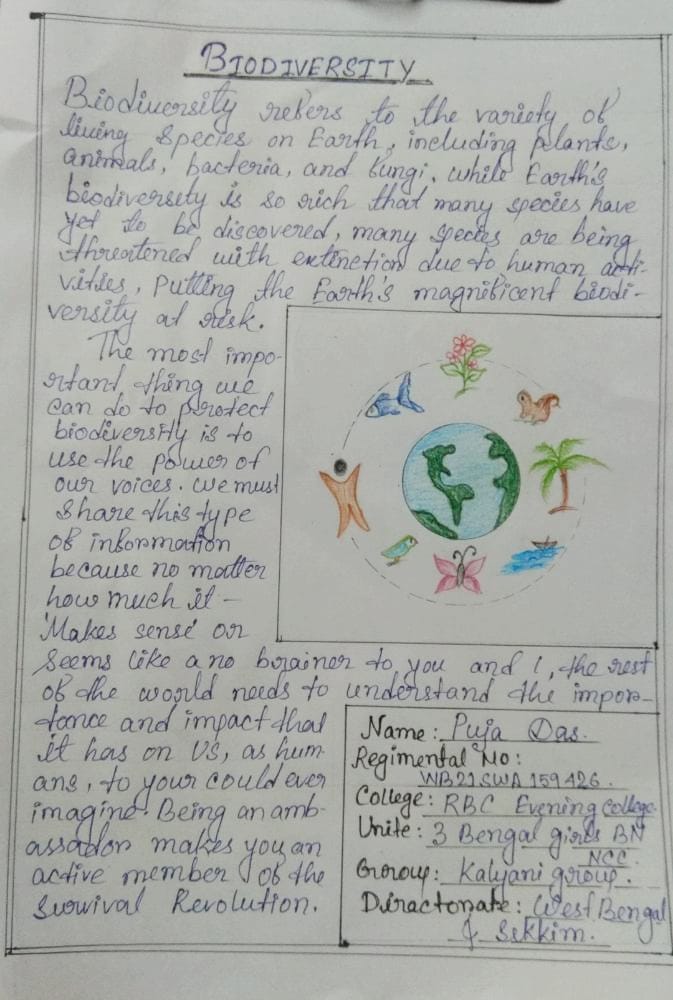 BIODIVERSITY
Biodiversity refers to the variety of
living species on Earth, including plants,
animals, bacteria, and fungi. while Earth's
biodiversity is so rich that many species have
yet to be discovered, many species are being
threatened with extinction due to human acti-
vities, Putting the Earth's magnificent biodi-
versity at risk.
The most impo-
rtant thing we
can do to protect
biodiversity is to
use the power of
our voices. we must
share this type
of information
because no matter
how much it -
'Makes sense' or
seems like a no brainer to you and I, the rest
of the world needs to understand the impor-
tance and impact that
it has on US, as hum-
ans, to your could ever
imagine. Being an amb-
assador makes you an
active member of the
Survival Revolution.
Name: Puja Das.
Regimental No:
WB21SWA159426.
College: RBC Evening College.
Unite: 3 Bengal girls BN
NCC.
Group: Kalyani group.
Diractorate: West Bengal
& Sikkim.